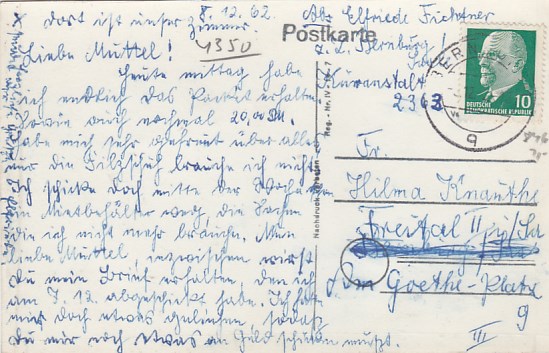 x dort ist unser
Zimmer.
8.12.62.
1350
Liebe Muttel!
Heute mittag habe
ich endlich das Paket erhalten
sowie auch nochmal 20,00 DM.
Habe mich sehr gefreut über alles
nur die Filzschuh brauche ich nicht
Ich schicke doch mitte der Woche
ein Mietbehälter weg, die Sachen
die ich nicht mehr brauche. Nun
liebe Muttel, inzwischen wirst
du mein Brief erhalten den ich
am 7.12. abgeschickt habe. Ich
mir doch etwas geliehen sodaß
du mir noch etwas an Geld schicken mußt.
Abs. Elfriede Fichtner
Postkarte
z. Z. Bernburg/
Kuranstalt
2363
DEUTSCHE
DEMOKRATISCHE REPUBLIK
10
Fr.
Hilma Knauthe
Freital II
Am Goethe-Platz
9
III